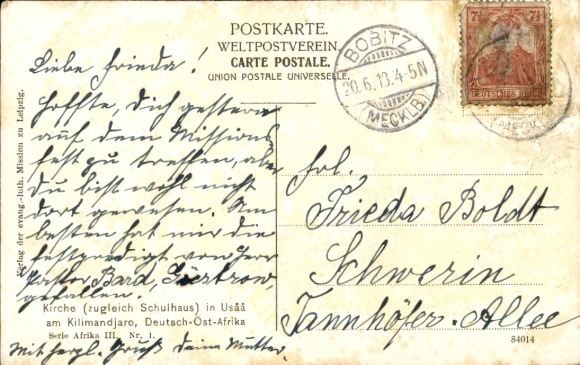 POSTKARTE.
WELTPOSTVEREIN.
CARTE POSTALE.
UNION POSTALE UNIVERSELLE.
BOBITZ
20.6.18.4-5N
(MECKLB.)
7½ 7½
DEUTSCHES REICH
Liebe Frieda!
Hoffte, dich gestern
auf dem Missions
fest zu treffen, aber
du bist wohl nicht
dort gewesen. Am
besten hat mir die
Festpredigt von Herr
Pastor Bard, Güstrow,
gefallen.
Mit herzl. Gruß deine Mutter.
Frl.
Frieda Boldt
Schwerin
Tannhöfer-Allee
Kirche (zugleich Schulhaus) in Usåå
am Kilimandjaro, Deutsch-Ost-Afrika
Serie Afrika III. Nr. 1.
84014
Verlag der evang.-luth. Mission zu Leipzig.